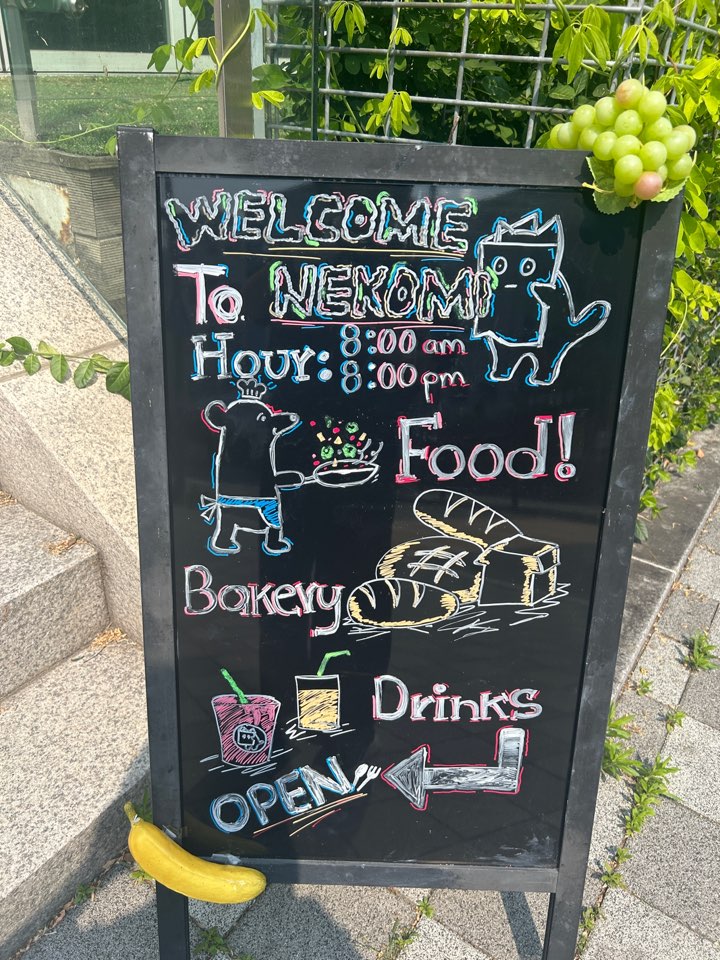 WELCOME
To NEKOMI
Hour: 8:00 am
8:00 pm
Food!
Bakery
Drinks
OPEN